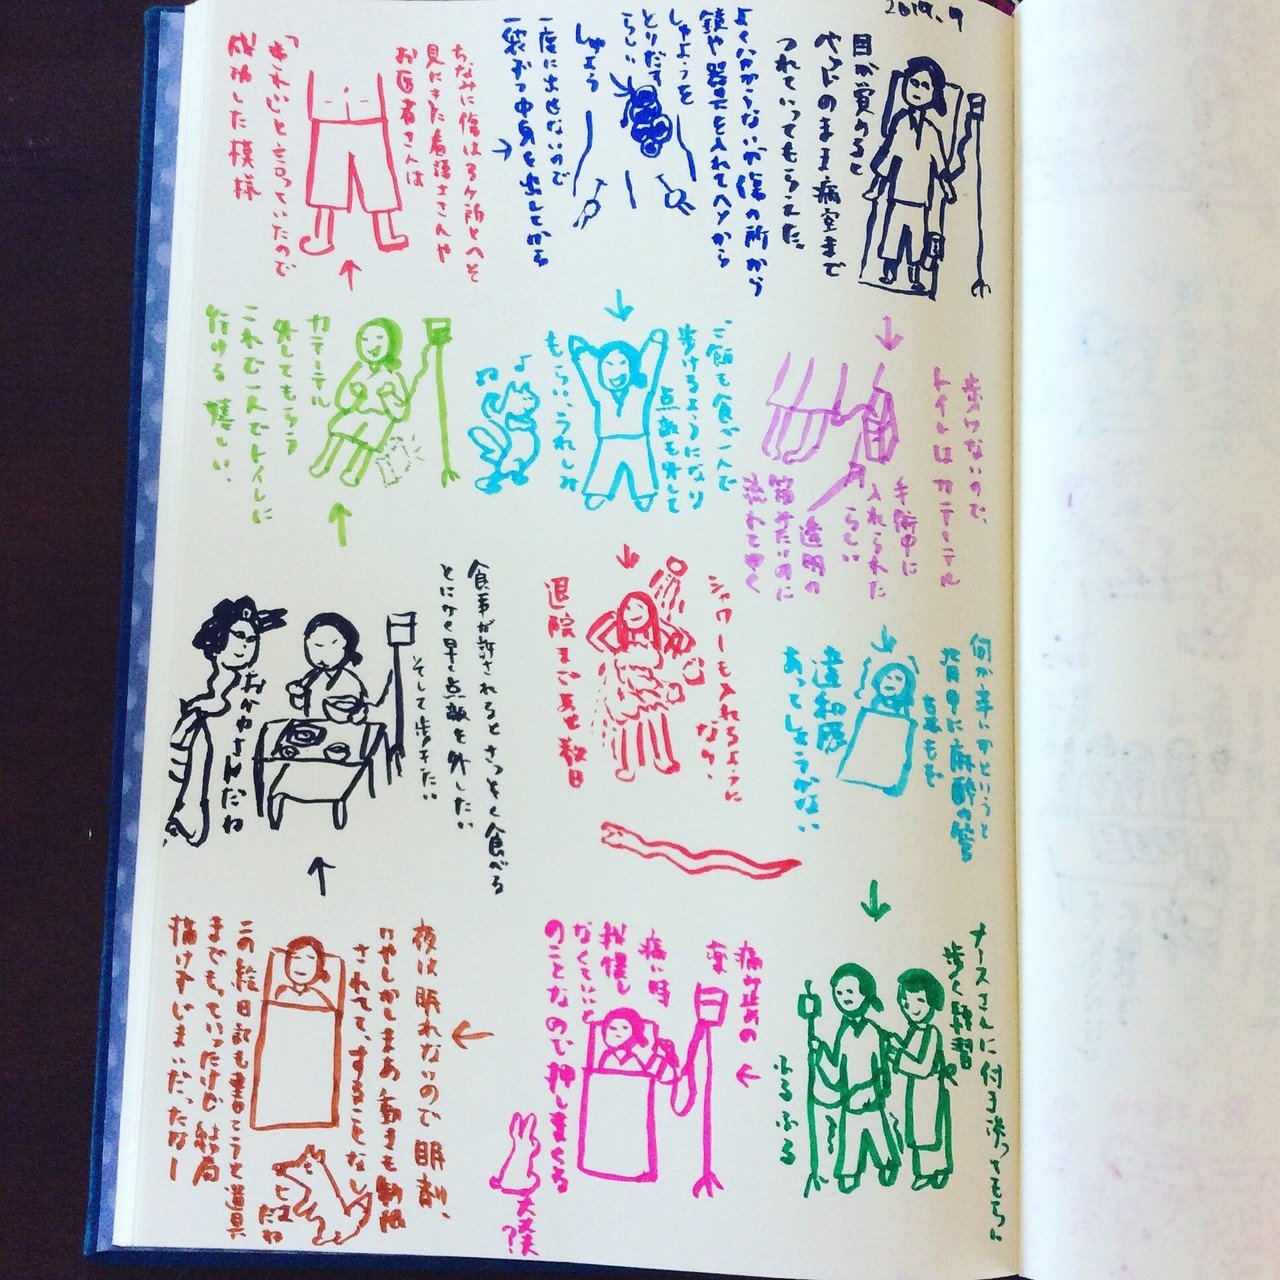 2019.9
目が覚めると
ベッドのまま病室まで
つれていってもらえた。
よくわからないが傷の所から
鏡や器具を入れてヘソから
しゅようを
とりだす
らしい
しゅよう
一度に出せないので
一袋ずつ中身を出してから
ちなみに傷は3ヶ所とへそ
見にきた看護士さんや
お医者さんは
「きれい」と言っていたので
成功した模様
歩けないので、
トイレはカテーテル
手術中に
入れられた
らしい
透明の
箱みたいのに
流れてゆく
何が辛いかというと
尿道の
違和感
あってしょうがない
ナースさんに付き添ってもらい
歩く練習
ふるふる
痛み止めの
薬
痛い時
我慢し
なくていいと
のことなので押しまくる
大丈夫?
夜は眠れないので眠剤、
されてて、することなし
この絵日記も書こうと道具
までもっていったけど結局
描けずじまいだったなー
食事が許されるとさっそく食べる
とにかく早く点滴を外したい
そして歩きたい
おかゆさんだね
カテーテル
外してもらう
これで一人でトイレに
行ける 嬉しい.
ご飯も食べ一人で
歩けるようになり
点滴も外して
もらい、うれしみ
シャワーも入れるように
なり、
退院まであと数日